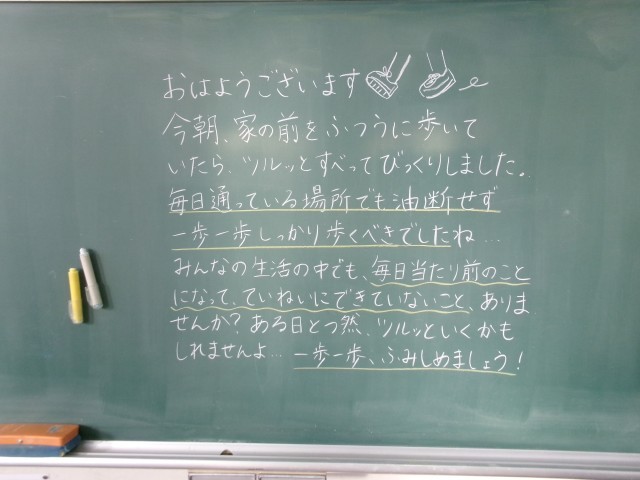 おはようございます
今朝、家の前をふつうに歩いて
いたら、ツルッとすべってびっくりしました。
毎日通っている場所でも油断せず
一歩一歩しっかり歩くべきでしたね…
みんなの生活の中でも、毎日当たり前のこと
になって、ていねいにできていないこと、ありま
せんか？ある日とつ然、ツルッといくかも
しれませんよ… 一歩一歩、ふみしめましょう！